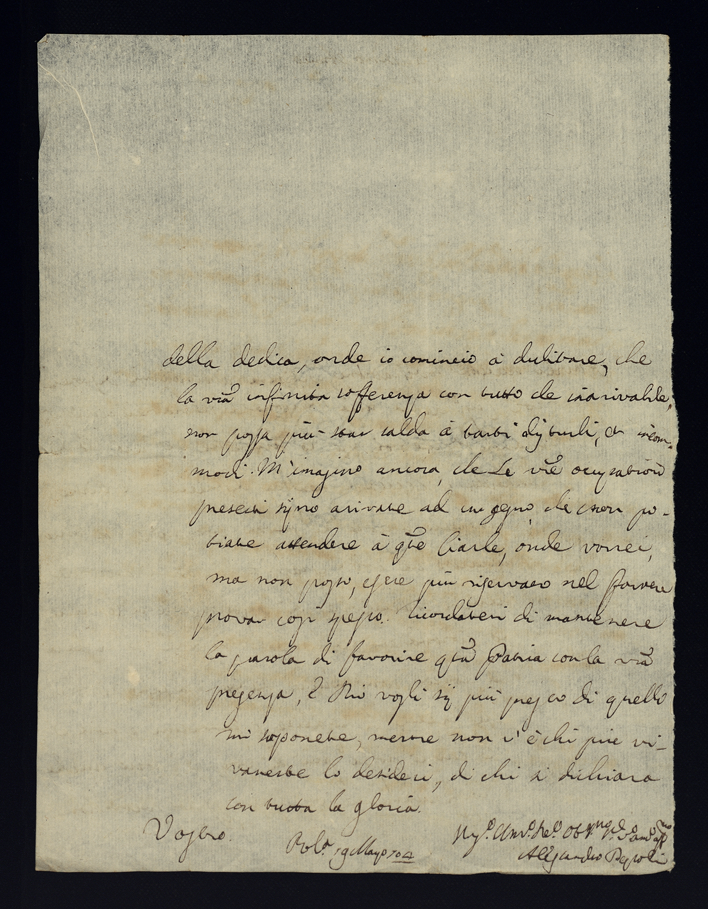 della dedica, onde io comincio à dubitare, che
la vrã infinita sofferenza con tutto che inarivabile,
non possa più star salda à tanti disturbi, et incom-
modi. M'imagino ancora, che Le vrẽ ocupationi
presenti sijno arivate ad un segno, che non po-
tiate attendere à qtẽ Ciarle, onde vorrei,
ma non posso, essere più riservato nel
provar così spesso. Ricordatevi di mantenere
la parola di favorire qtã Patria con la vrã
presenza, e Dio vogli sij più presto di quello
mi suponete, mentre non v'è chi più vi-
vamente lo desideri, di chi si dichiara
con tutta la gloria
Vostro
Bol.ª 19 Maggio
Alessandro Pepoli